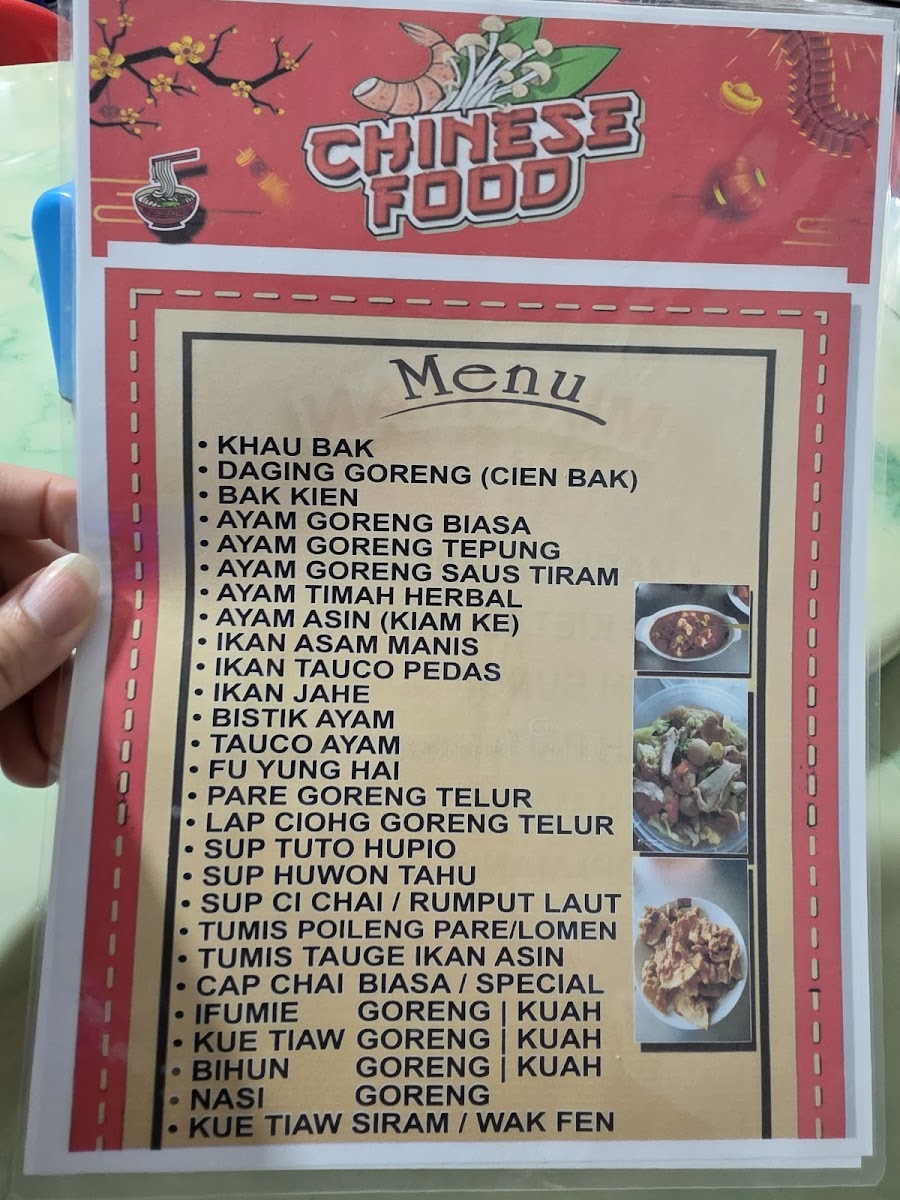 CHINESE
FOOD
Menu
• KHAU BAK
• DAGING GORENG (CIEN BAK)
• BAK KIEN
• AYAM GORENG BIASA
• AYAM GORENG TEPUNG
• AYAM GORENG SAUS TIRAM
• AYAM TIMAH HERBAL
• AYAM ASIN (KIAM KE)
• IKAN ASAM MANIS
• IKAN TAUCO PEDAS
• IKAN JAHE
• BISTIK AYAM
• TAUCO AYAM
• FU YUNG HAI
• PARE GORENG TELUR
• LAP CIOHG GORENG TELUR
• SUP TUTO HUPIO
• SUP HUWON TAHU
• SUP CI CHAI / RUMPUT LAUT
• TUMIS POILENG PARE/LOMEN
• TUMIS TAUGE IKAN ASIN
• CAP CHAI BIASA / SPECIAL
• IFUMIE GORENG | KUAH
• KUE TIAW GORENG | KUAH
• BIHUN GORENG | KUAH
• NASI GORENG
• KUE TIAW SIRAM / WAK FEN